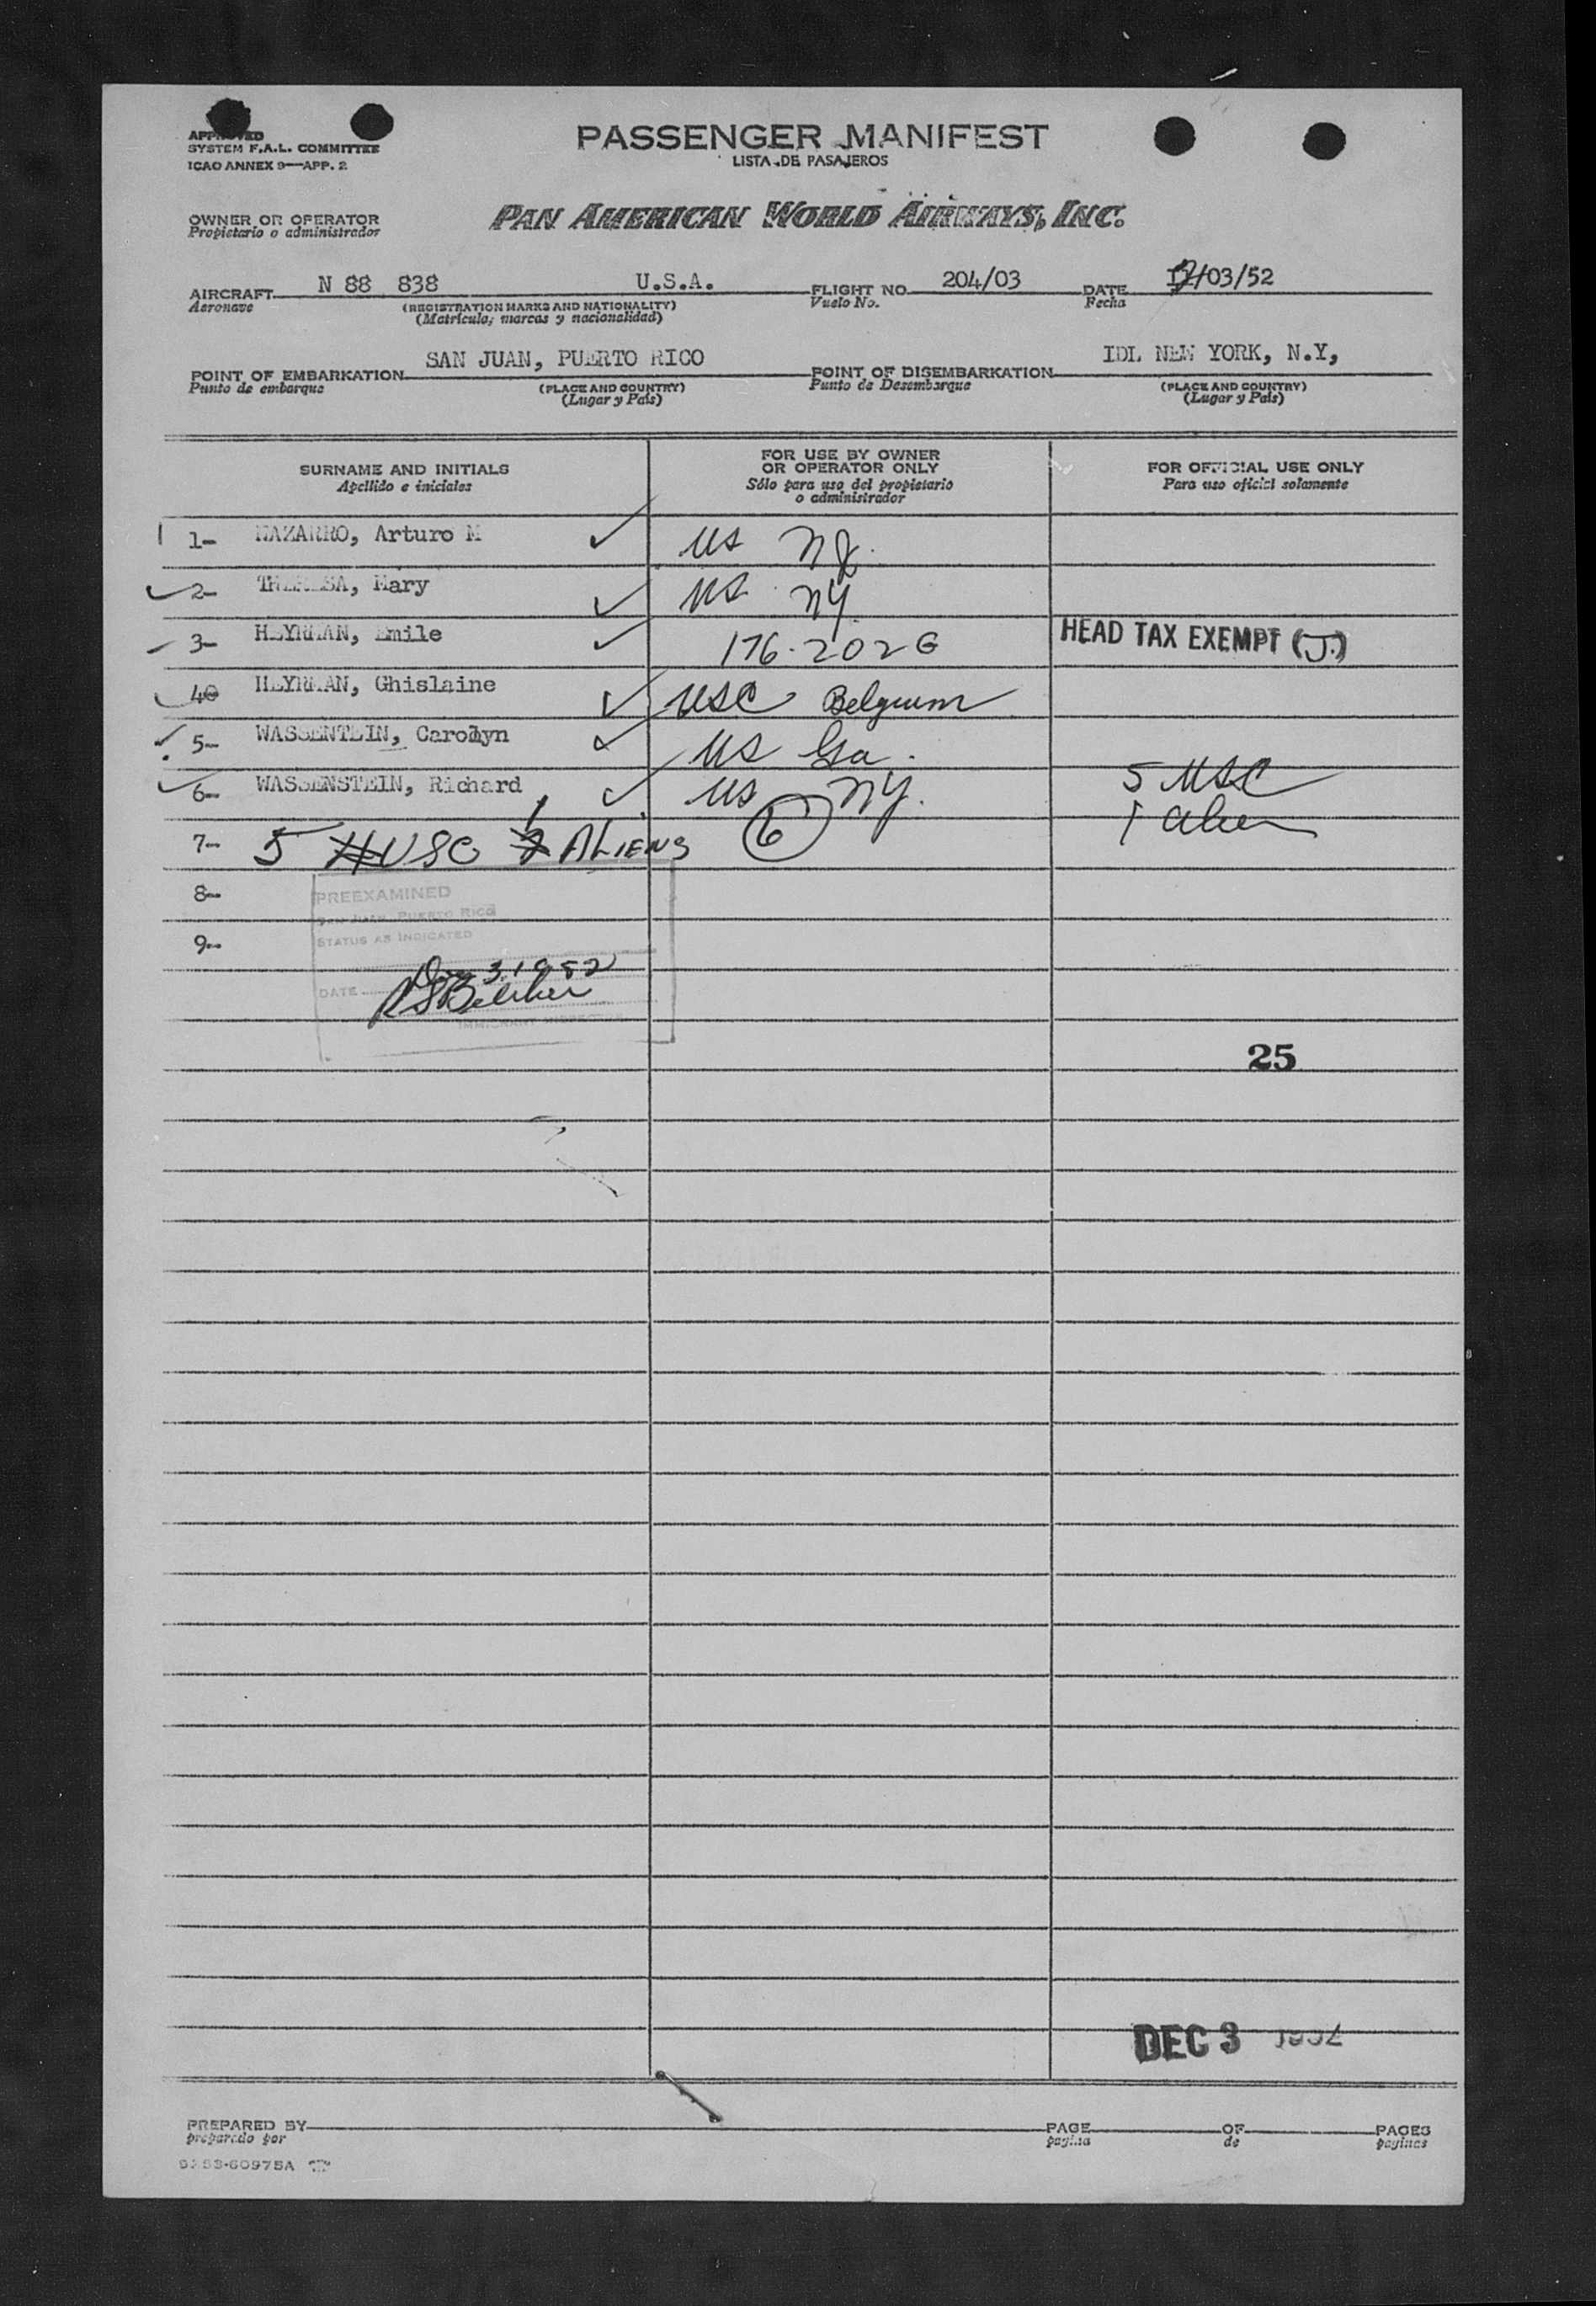 APPROVED
SYSTEM F.A.L. COMMITTEE
ICAO ANNEX 9—APP. 2
PASSENGER MANIFEST
LISTA DE PASAJEROS
OWNER OR OPERATOR
Propietario o administrador
PAN AMERICAN WORLD AIRWAYS, INC.
AIRCRAFT N 88 838 U.S.A. FLIGHT NO. 204/03 DATE 12/03/52
Aeronave (REGISTRATION MARKS AND NATIONALITY) Vuelo No. Fecha
(Matrícula; marcas y nacionalidad)
POINT OF EMBARKATION SAN JUAN, PUERTO RICO POINT OF DISEMBARKATION IDL NEW YORK, N.Y,
Punto de embarque (PLACE AND COUNTRY) Punto de Desembarque (PLACE AND COUNTRY)
(Lugar y País) (Lugar y País)
SURNAME AND INITIALS FOR USE BY OWNER OR OPERATOR ONLY FOR OFFICIAL USE ONLY
Apellido e iniciales Sólo para uso del propietario o administrador Para uso oficial solamente
1- NAZARRO, Arturo M US NJ.
2- THERESA, Mary US NY
3- HEYRMAN, Emile 176-202G HEAD TAX EXEMPT (J.)
4 HEYRMAN, Ghislaine USC Belgium
5- WASSENTEIN, Carolyn US Ga.
6- WASSENSTEIN, Richard US NY. 5 USC
1 alien
7- 5 USC 1 ALIENS 6
8-
PREEXAMINED
SAN JUAN, PUERTO RICO
9-
STATUS AS INDICATED
DATE Dec 3, 1952
IMMIGRANT INSPECTOR
25
DEC 3 1952
PREPARED BY PAGE OF PAGES
preparado por pagina de paginas